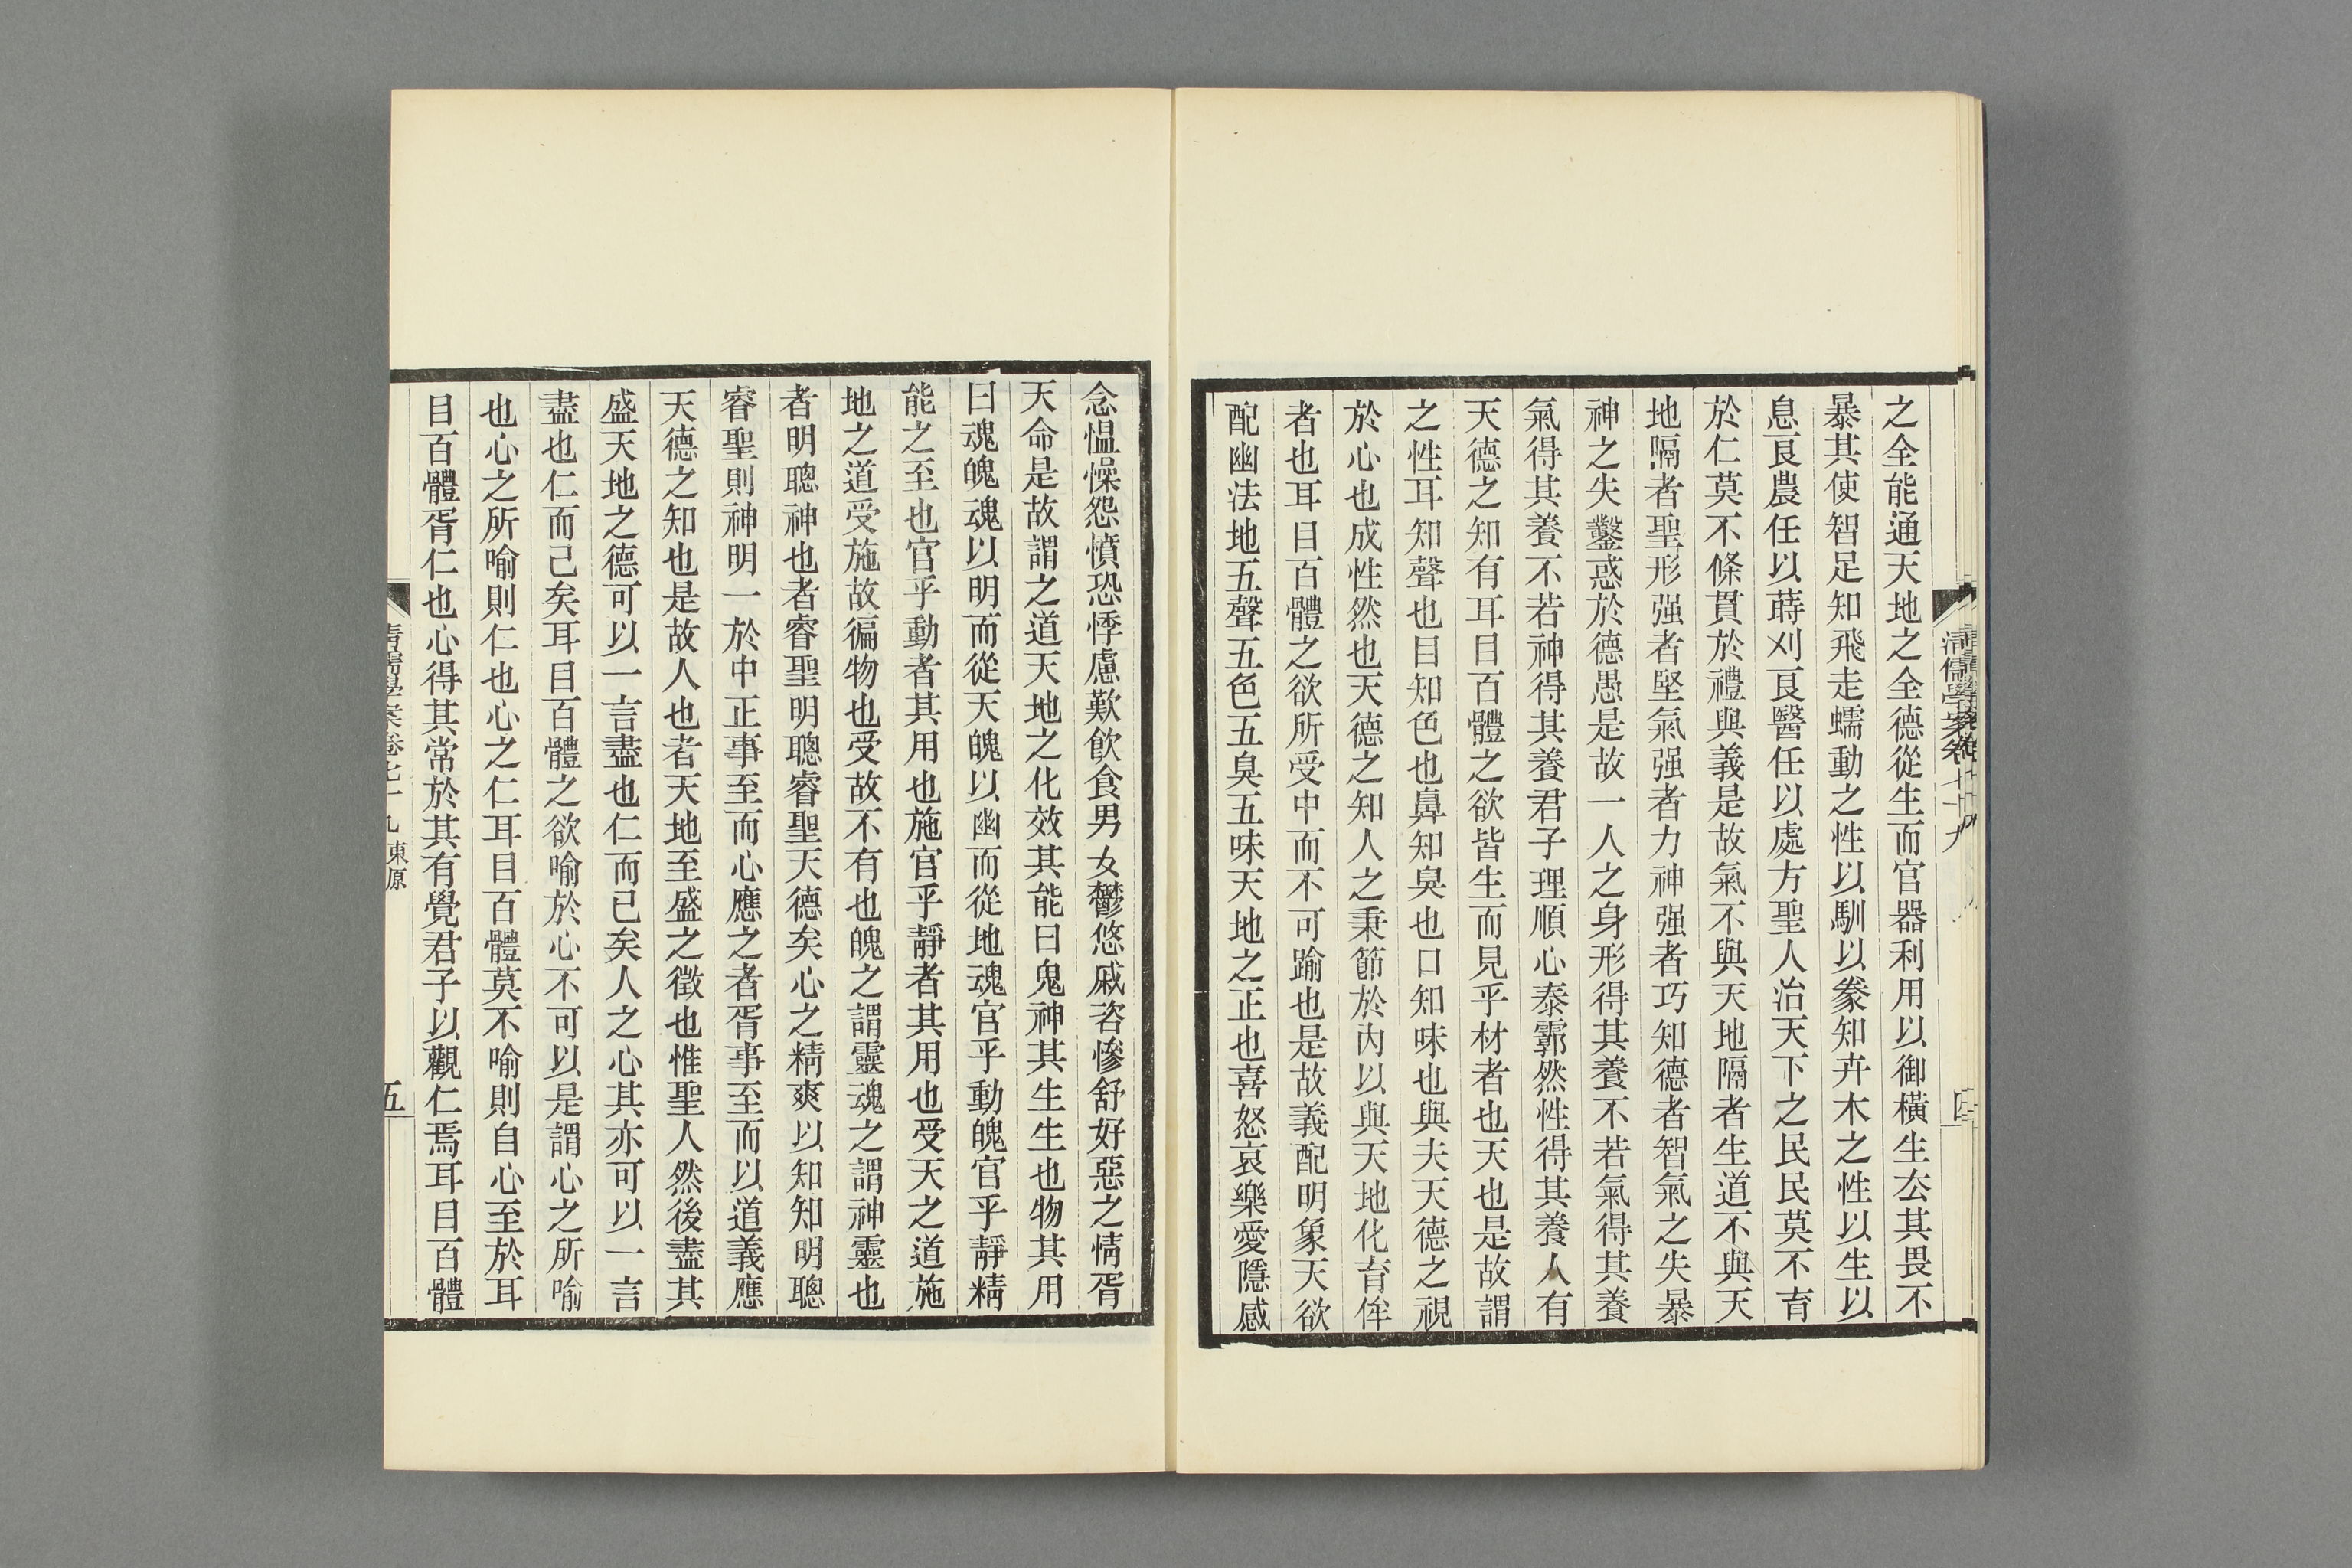 清儒學案卷七十九
四
之全能通天地之全德從生而官器利用以御橫生去其畏不
暴其使智足知飛走蠕動之性以馴以豢知卉木之性以生以
息良農任以蒔刈良醫任以處方聖人治天下之民民莫不育
於仁莫不條貫於禮與義是故氣不與天地隔者生道不與天
地隔者聖形强者堅氣强者力神强者巧知德者智氣之失暴
神之失鑿惑於德愚是故一人之身形得其養不若氣得其養
氣得其養不若神得其養君子理順心泰霩然性得其養人有
天德之知有耳目百體之欲皆生而見乎材者也天也是故謂
之性耳知聲也目知色也鼻知臭也口知味也與夫天德之視
於心也成性然也天德之知人之秉節於內以與天地化育侔
者也耳目百體之欲所受中而不可踰也是故義配明象天欲
配幽法地五聲五色五臭五味天地之正也喜怒哀樂愛隱感
念慍懆怨憤恐悸慮歎飲食男女鬱悠戚咨慘舒好惡之情胥
天命是故謂之道天地之化效其能曰鬼神其生生也物其用
曰魂魄魂以明而從天魄以幽而從地魂官乎動魄官乎靜精
能之至也官乎動者其用也施官乎靜者其用也受天之道施
地之道受施故徧物也受故不有也魄之謂靈魂之謂神靈也
者明聰神也者睿聖明聰睿聖天德矣心之精爽以知知明聰
睿聖則神明一於中正事至而心應之者胥事至而以道義應
天德之知也是故人也者天地至盛之徵也惟聖人然後盡其
盛天地之德可以一言盡也仁而已矣人之心其亦可以一言
盡也仁而已矣耳目百體之欲喻於心不可以是謂心之所喻
也心之所喻則仁也心之仁耳目百體莫不喻則自心至於耳
目百體胥仁也心得其常於其有覺君子以觀仁焉耳目百體
清儒學案卷七十九 東原
五